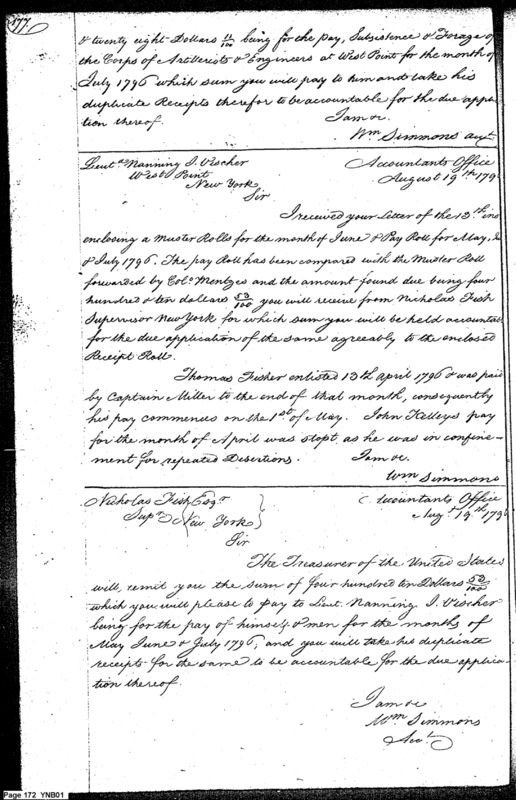 177
& twenty eight Dollars 11/100 being for the pay, Subsistence & Forage of
the Corps of Artillerists & Engineers at West Point for the month of
July 1796 which sum you will pay to him and take his
duplicate Receipts therefor to be accountable for the due applica
tion thereof. I am &c.
Wm Simmons acct
Lieut Nanning J. Vischer
West Point
New York
Accountants Office
August 19th 179
Sir
I received your Letter of the 13th ins
enclosing a Muster Rolls for the month of June & Pay Roll for May, Ju
& July 1796. The pay Roll has been compared with the Muster Roll
forwarded by Colo. Mentges and the amount found due being four
hundred & ten dollars 53/100 you will receive from Nicholas Fish
Supervisor New York for which sum you will be held accountab
for the due application of the same agreeably to the enclosed
Receipt Roll.
Thomas Fisher enlisted 13th April 1796 & was paid
by Captain Miller to the end of that month, consequently
his pay commences on the 1st of May. John Kelleys pay
for the month of April was stopt as he was in confine-
ment for repeated Desertions. I am &c.
Wm Simmons
Nicholas Fish Esqr
Supr New York
Accountants Office
Augt 19th 1796
Sir
The Treasurer of the United States
will remit you the sum of four hundred ten Dollars 53/100
which you will please to pay to Lieut. Nanning J. Vischer
being for the pay of himself & men for the months of
May June & July 1796, and you will take his duplicate
receipts for the same to be accountable for the due applica-
tion thereof.
I am &c
Wm Simmons
Acct
Page 172 YNB01